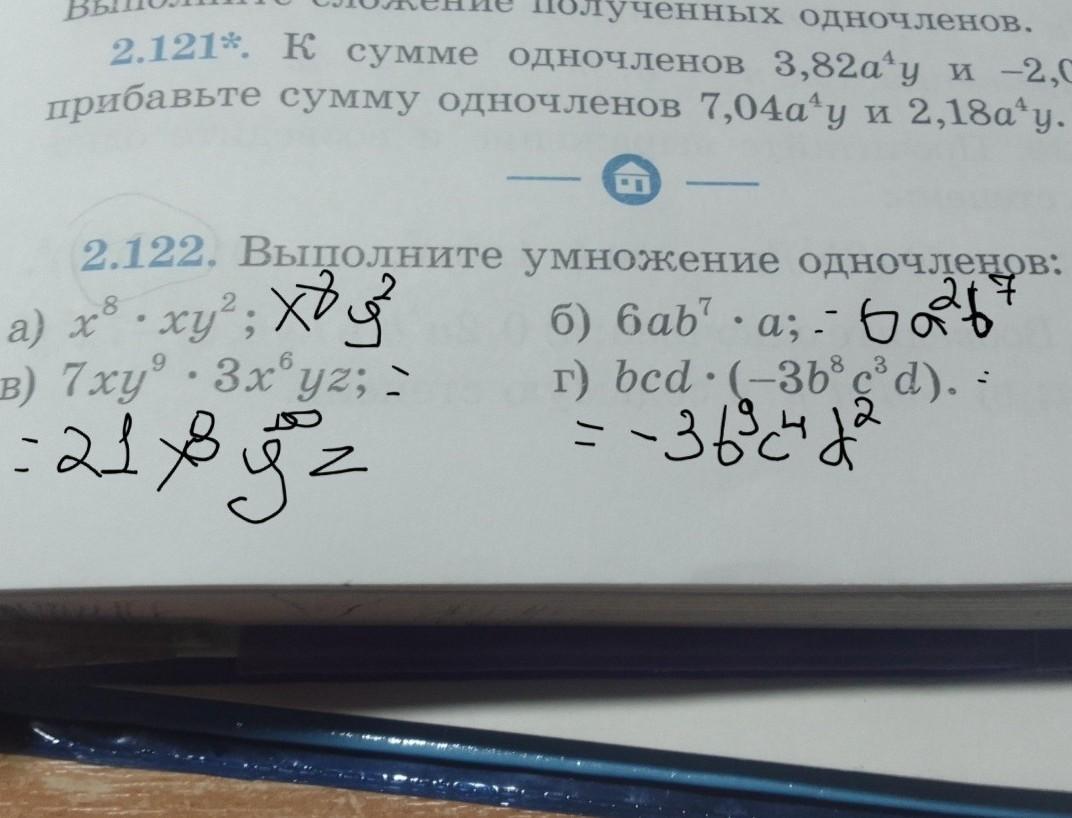 Выполните сложение полученных одночленов.
2.121*. К сумме одночленов 3,82a⁴y и –2,0
прибавьте сумму одночленов 7,04a⁴y и 2,18a⁴y.
2.122. Выполните умножение одночленов:
а) x⁸ · xy²; б) 6ab⁷ · a; = 6a²b⁷
в) 7xy⁹ · 3x⁶yz; = г) bcd · (–3b⁸c³d). =
= 21 z = -3b⁹c⁴d²